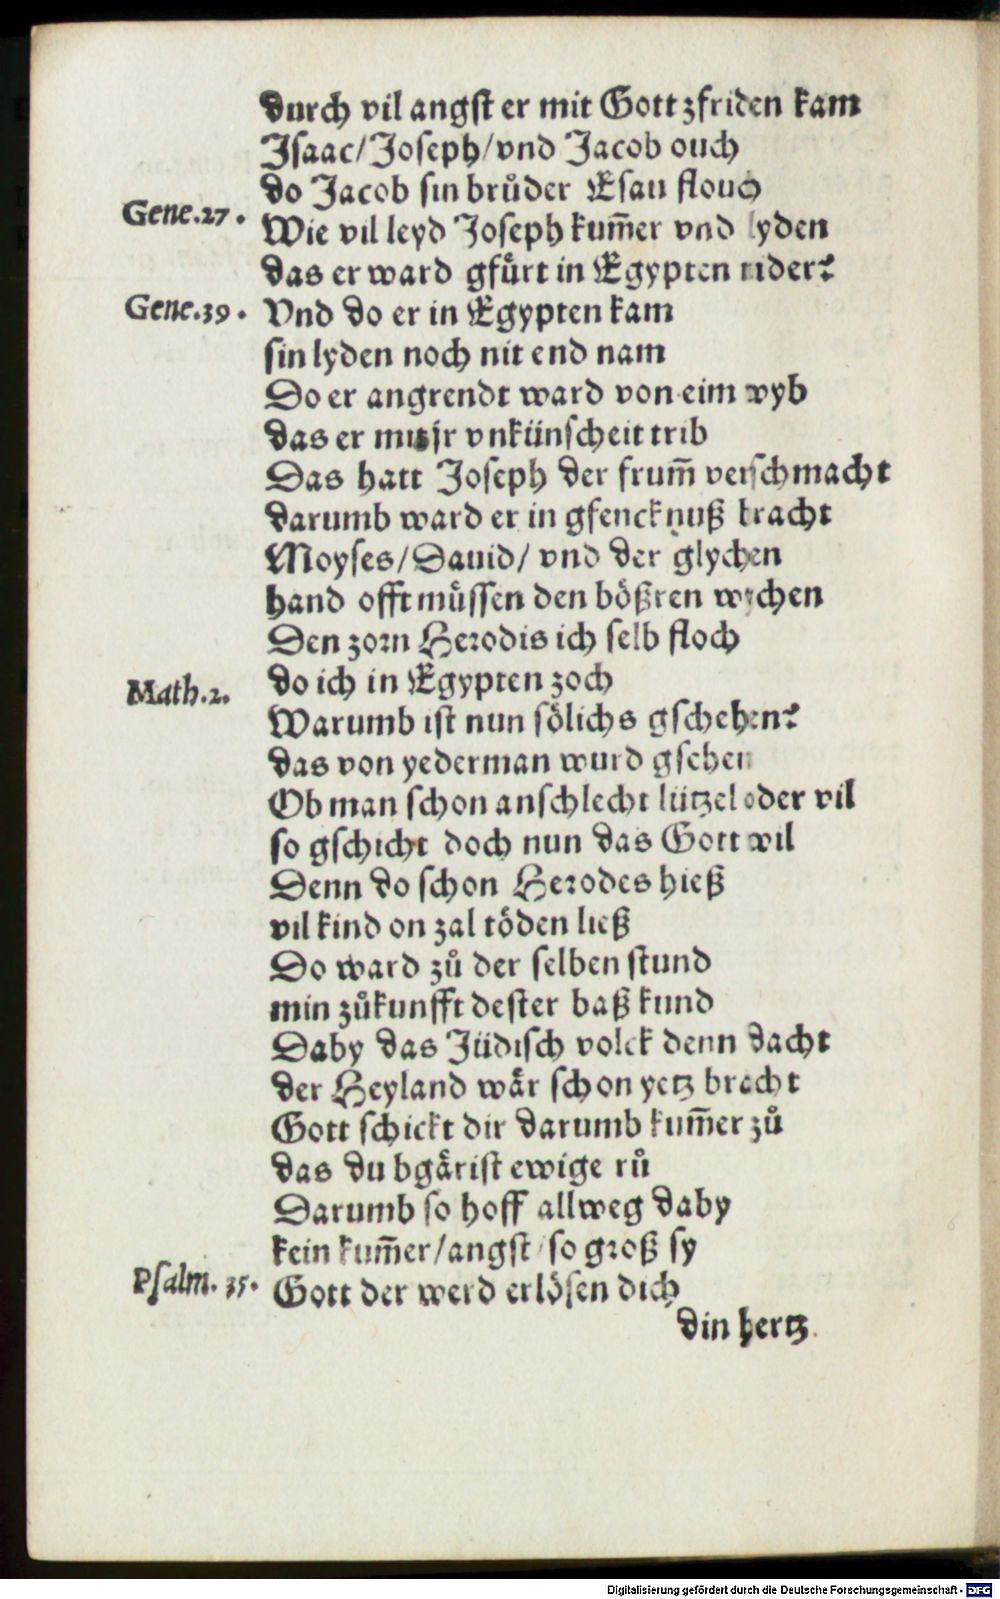 durch vil angst er mit Gott zfriden kam
Isaac/Joseph/vnd Jacob ouch
do Jacob sin brůder Esau flouch
Gene.27.
Wie vil leyd Joseph kum̄er vnd lyden
das er ward gfürt in Egypten nider?
Gene.39.
Vnd do er in Egypten kam
sin lyden noch nit end nam
Do er angrendt ward von eim wyb
das er mit jr vnkünscheit trib
Das hatt Joseph der frum̄ verschmacht
darumb ward er in gfencknuß bracht
Moyses/Dauid/ vnd der glychen
hand offt müssen den bößren wychen
Den zorn Herodis ich selb floch
Math.2.
do ich in Egypten zoch
Warumb ist nun sölichs gschehen?
das von yederman wurd gsehen
Ob man schon anschlecht lützel oder vil
so gschicht doch nun das Gott wil
Denn do schon Herodes hieß
vil kind on zal töden ließ
Do ward zů der selben stund
min zůkunfft dester baß kund
Daby das Jüdisch volck denn dacht
der Heyland wär schon yetz bracht
Gott schickt dir darumb kum̄er zů
das du bgärist ewige rů
Darumb so hoff allweg daby
kein kum̄er/angst/so groß sy
Psalm. 35.
Gott der werd erlösen dich
din hertz
Digitalisierung gefördert durch die Deutsche Forschungsgemeinschaft - DFG